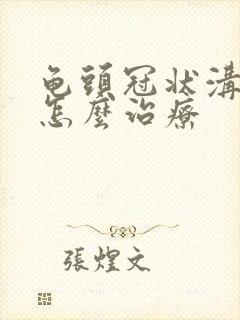 龟頭冠狀溝
怎麼治療
張煌文